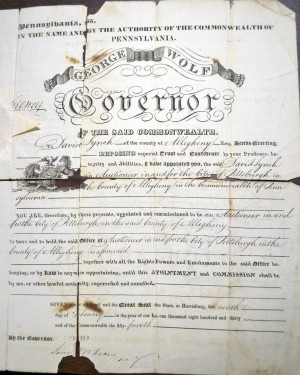 Pennsylvania, ss.
IN THE NAME AND BY THE AUTHORITY OF THE COMMONWEALTH OF
PENNSYLVANIA.
GEORGE WOLF
Governor
OF THE SAID COMMONWEALTH.
To David Lynch of the county of Allegheny Esq. Sends Greeting.
REPOSING especial Trust and Confidence in your Prudence,
Integrity and Abilities, I have appointed you, the said David Lynch
an Auctioneer in and for the City of Pittsburgh in
the County of Allegheny in the Commonwealth of Penn
sylvania
YOU ARE, therefore, by these presents, appointed and commissioned to be an Auctioneer in and
for the City of Pittsburgh in the said County of Allegheny
to have and to hold the said Office of Auctioneer in and for the City of Pittsburgh in the
County of Allegheny aforesaid
together with all the Rights Powers and Emoluments to the said Office
belonging, or by Law in anywise appertaining, until this APPOINTMENT and COMMISSION shall be
by me, or other lawful authority, superseded and annulled.
GIVEN under my hand and the Great Seal of the State, at Harrisburg, this ninth
day of in the year of our Lord one thousand eight hundred and thirty
and of the Commonwealth the fifty fourth
By the Governor